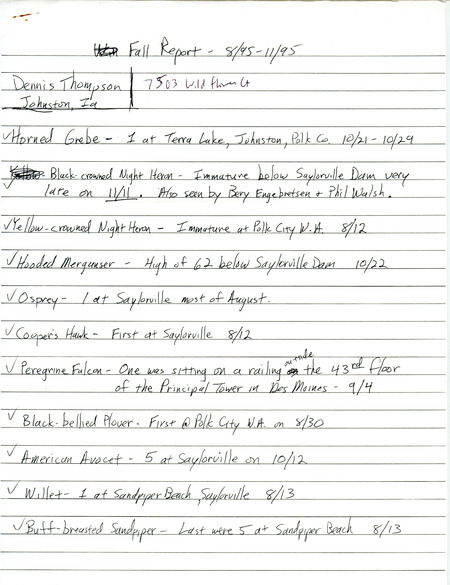 Fall Report - 8/95-11/95
Dennis Thompson
Johnston, Ia
7503 Wildflower Ct
✓Horned Grebe - 1 at Terra Lake, Johnston, Polk Co. 10/21-10/29
✓Black-crowned Night Heron - Immature below Saylorville Dam very
late on 11/11. Also seen by Bery Engebretsen + Phil Walsh.
✓Yellow-crowned Night Heron - Immature at Polk City W.A. 8/12
✓Hooded Merganser - High of 62 below Saylorville Dam 10/22
✓Osprey - 1 at Saylorville most of August.
✓Cooper's Hawk - First at Saylorville 8/12
✓Peregrine Falcon - One was sitting on a railing outside the 43rd floor
of the Principal Tower in Des Moines - 9/4
✓Black-bellied Plover - First @ Polk City W.A. on 8/30
✓American Avocet - 5 at Saylorville on 10/12
✓Willet - 1 at Sandpiper Beach, Saylorville 8/13
✓Buff-breasted Sandpiper - Last were 5 at Sandpiper Beach 8/13